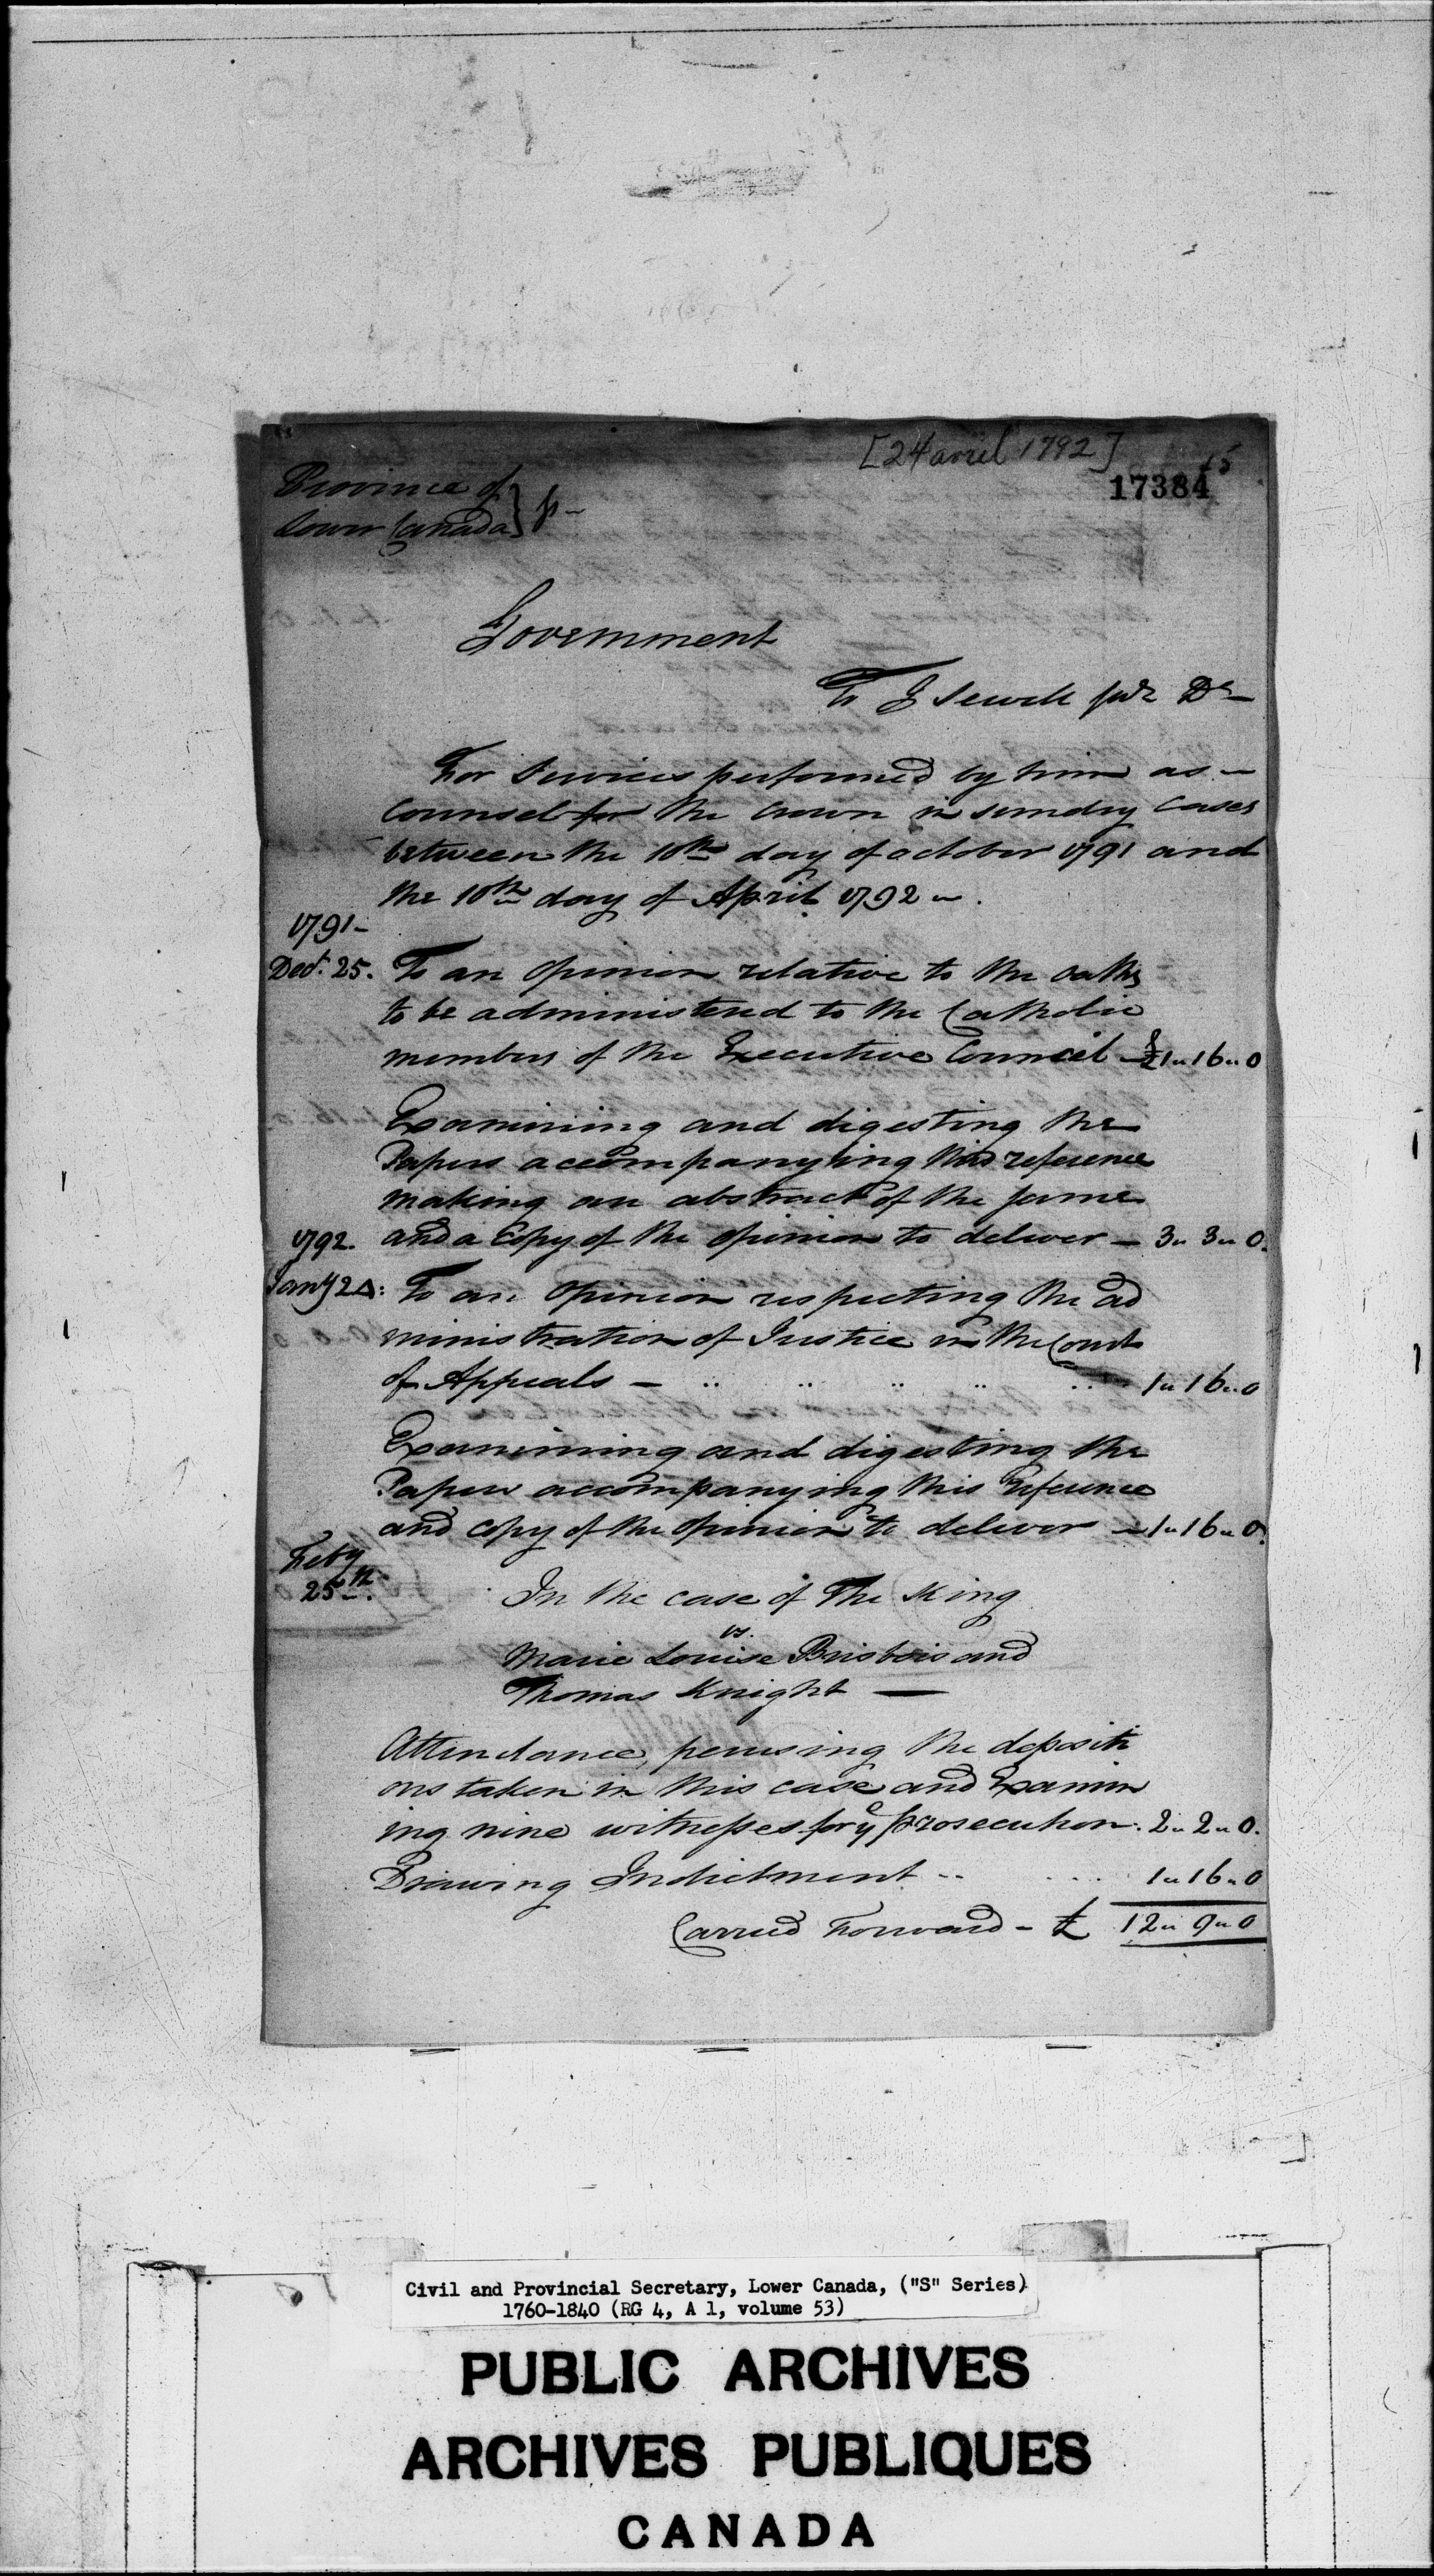 [24 avril 1792]
17384 15
Province of
Lower Canada} ss-
Government
To J Sewell junr Dr-
For Services performed by him as -
Counsel for the Crown in sundry Cases
between the 10th day of October 1791 and
the 10th day of April 1792 -.
1791-
Decr. 25. To an Opinion relative to the oaths
to be administered to the Catholic
members of the Executive Council - £1 " 16 " 0
Examining and digesting the
Papers accompanying this reference
making an abstract of the same
1792. and a Copy of the Opinion to deliver - 3 " 3 " 0.
Jany 24: To an Opinion respecting the ad
ministration of Justice in the Court
of Appeals - .. .. .. .. .. 1 " 16 " 0
Examining and digesting the
Papers accompanying this Reference
and copy of the Opinion to deliver - 1 " 16 " 0.
Feby
25th. In the case of The King
vs.
Marie Louise Brisbois and
Thomas Knight —
Attendance, perusing the depositi
ons taken in this case and Examin
ing nine witnesses for ye prosecution. 2 " 2 " 0.
Drawing Indictment .. ... 1 " 16 " 0
Carried Forward - £ 12 " 9 " 0
Civil and Provincial Secretary, Lower Canada, ("S" Series)
1760-1840 (RG 4, A 1, volume 53)
PUBLIC ARCHIVES
ARCHIVES PUBLIQUES
CANADA